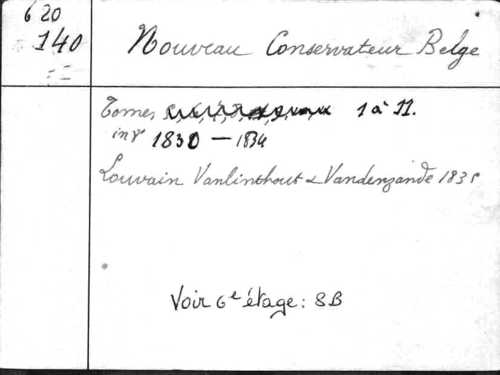 620
140
Nouveau Conservateur Belge
Tomes 1 à 11.
in 8° 1830 — 1834
Louvain Vanlinthout & Vandenzande 1835
Voir 6e étage: 8B